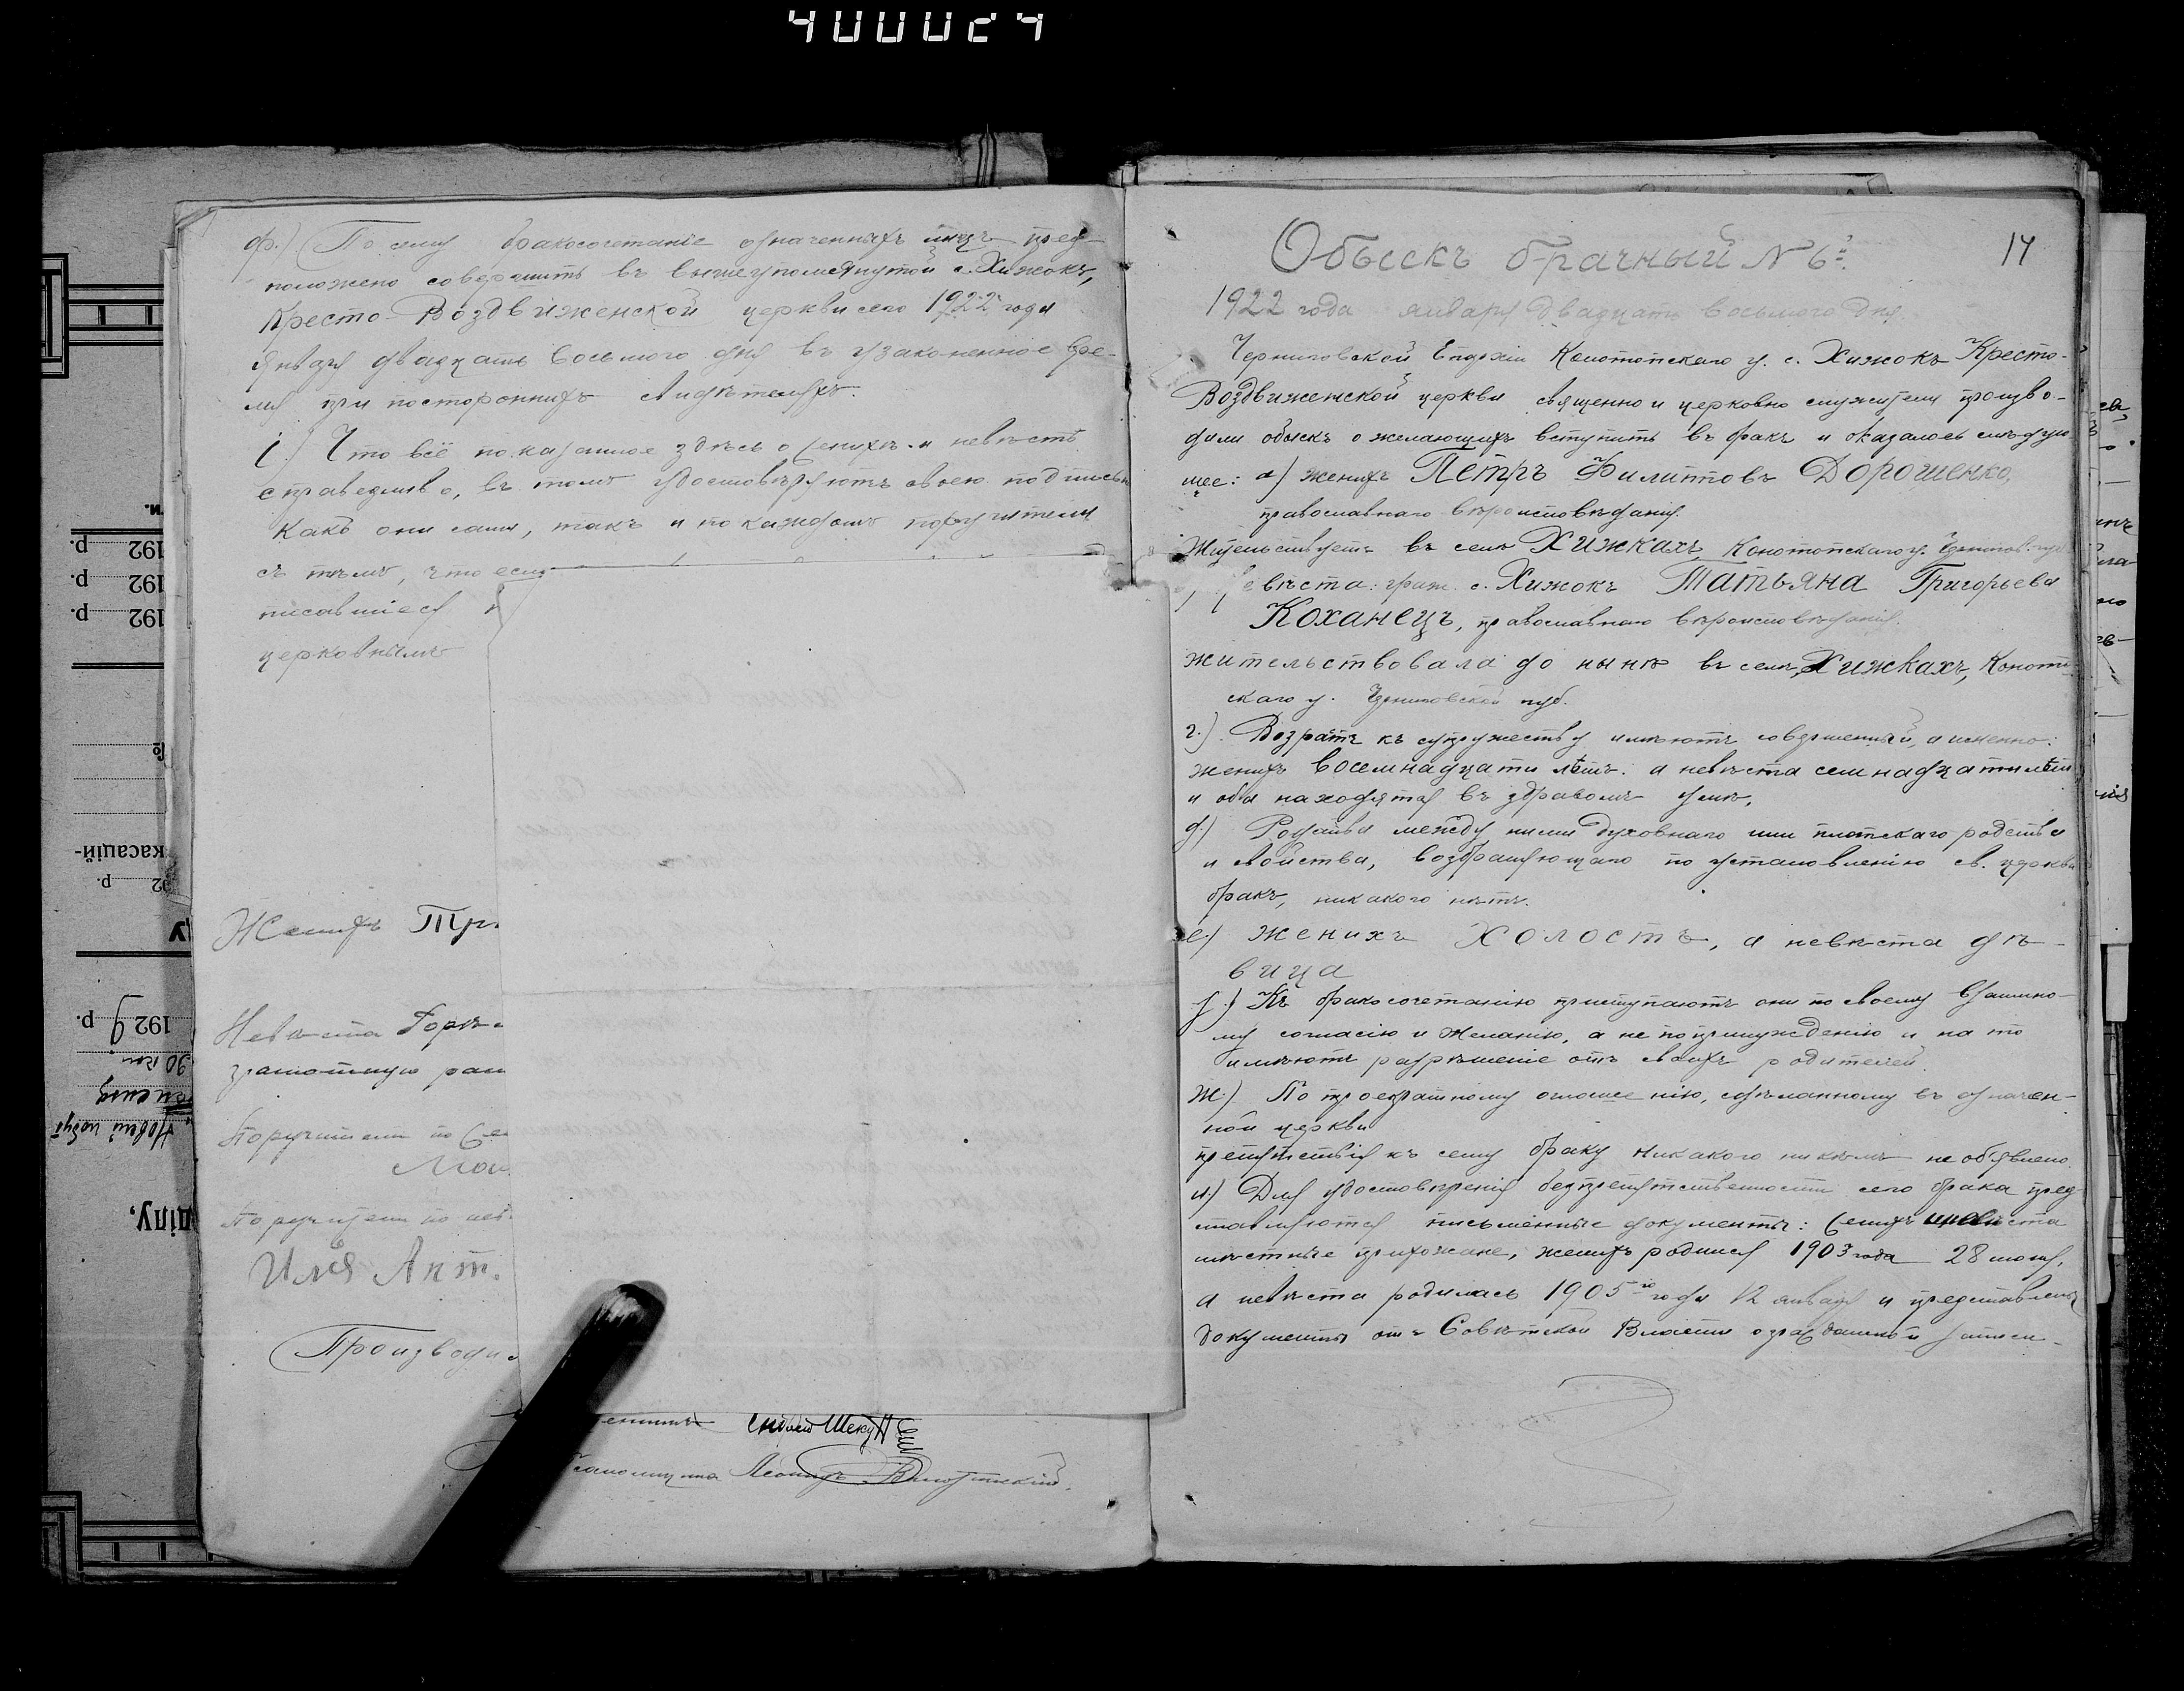 400024
ѳ.) По сему бракосочетаніе означенныхъ лицъ пред-
положено совершить въ вышеупомянутой с. Хижокъ,
Кресто-Воздвиженской церкви сего 1922 года
января двадцать восьмого дня въ узаконенное вре-
мя при постороннихъ свидѣтеляхъ.
і.) Что всё показанное здѣсь о женихѣ и невѣстѣ
справедливо, въ томъ удостовѣряютъ своею подписью
какъ они сами, такъ и по каждомъ поручители
съ тѣмъ, что если
писавшіеся
церковнымъ
Женихъ
Невѣста
грамотную
Поручители по
Поручители по
Илья Ант.
Производи
Леонидъ
192 р.
192 р.
192 р.
№
касацій-
192 9 р.
90 коп.
ділу,
Обыскъ брачный N 6й.
14
1922 года января двадцать восьмого дня
Черниговской Епархіи Конотопскаго у. с. Хижокъ Кресто-
Воздвиженской церкви священно и церковно служители произво-
дили обыскъ о желающихъ вступить въ бракъ и оказалось слѣдую-
щее: а) женихъ Петръ Филипповъ Дорошенко,
православнаго вѣроисповѣданія.
Жительствуетъ въ селѣ Хижкахъ, Конотопскаго у.
евѣста: граж. с. Хижокъ Татьяна Григорьева
Коханецъ, православнаго вѣроисповѣданія.
жительствовала до нынѣ въ селѣ, Хижкахъ, Конотоп-
скаго у. Черниговской губ.
г.) Возрастъ къ супружеству имѣютъ совершенный, а именно:
женихъ восемнадцати лѣтъ: а невѣста семнадцати лѣтъ
и оба находятся въ здравомъ умѣ.
д.) Родства между ними духовнаго или плотскаго родства
и свойства, возбраняющаго по установленію св. церкви
бракъ, никакого нѣтъ.
е.) женихъ холостъ, а невѣста дѣ-
вица
ѕ.) Къ бракосочетанію приступаютъ они по своему взаимно-
му согласію и желанію, а не по принужденію и на то
имѣютъ разрѣшеніе отъ своихъ родителей.
ж.) По троекратному оглашенію, сдѣланному въ означен-
ной церкви
препятствія къ сему браку никакого никѣмъ не объявлено.
и.) Для удостовѣренія безпрепятственности сего брака пред
ставляются письменные документы: женихъ и невѣста
мѣстные прихожане, женихъ родился 1903 года 28 іюня,
а невѣста родилась 1905го года 12 января и представлены
документы отъ Совѣтской Власти о гражданской записи.